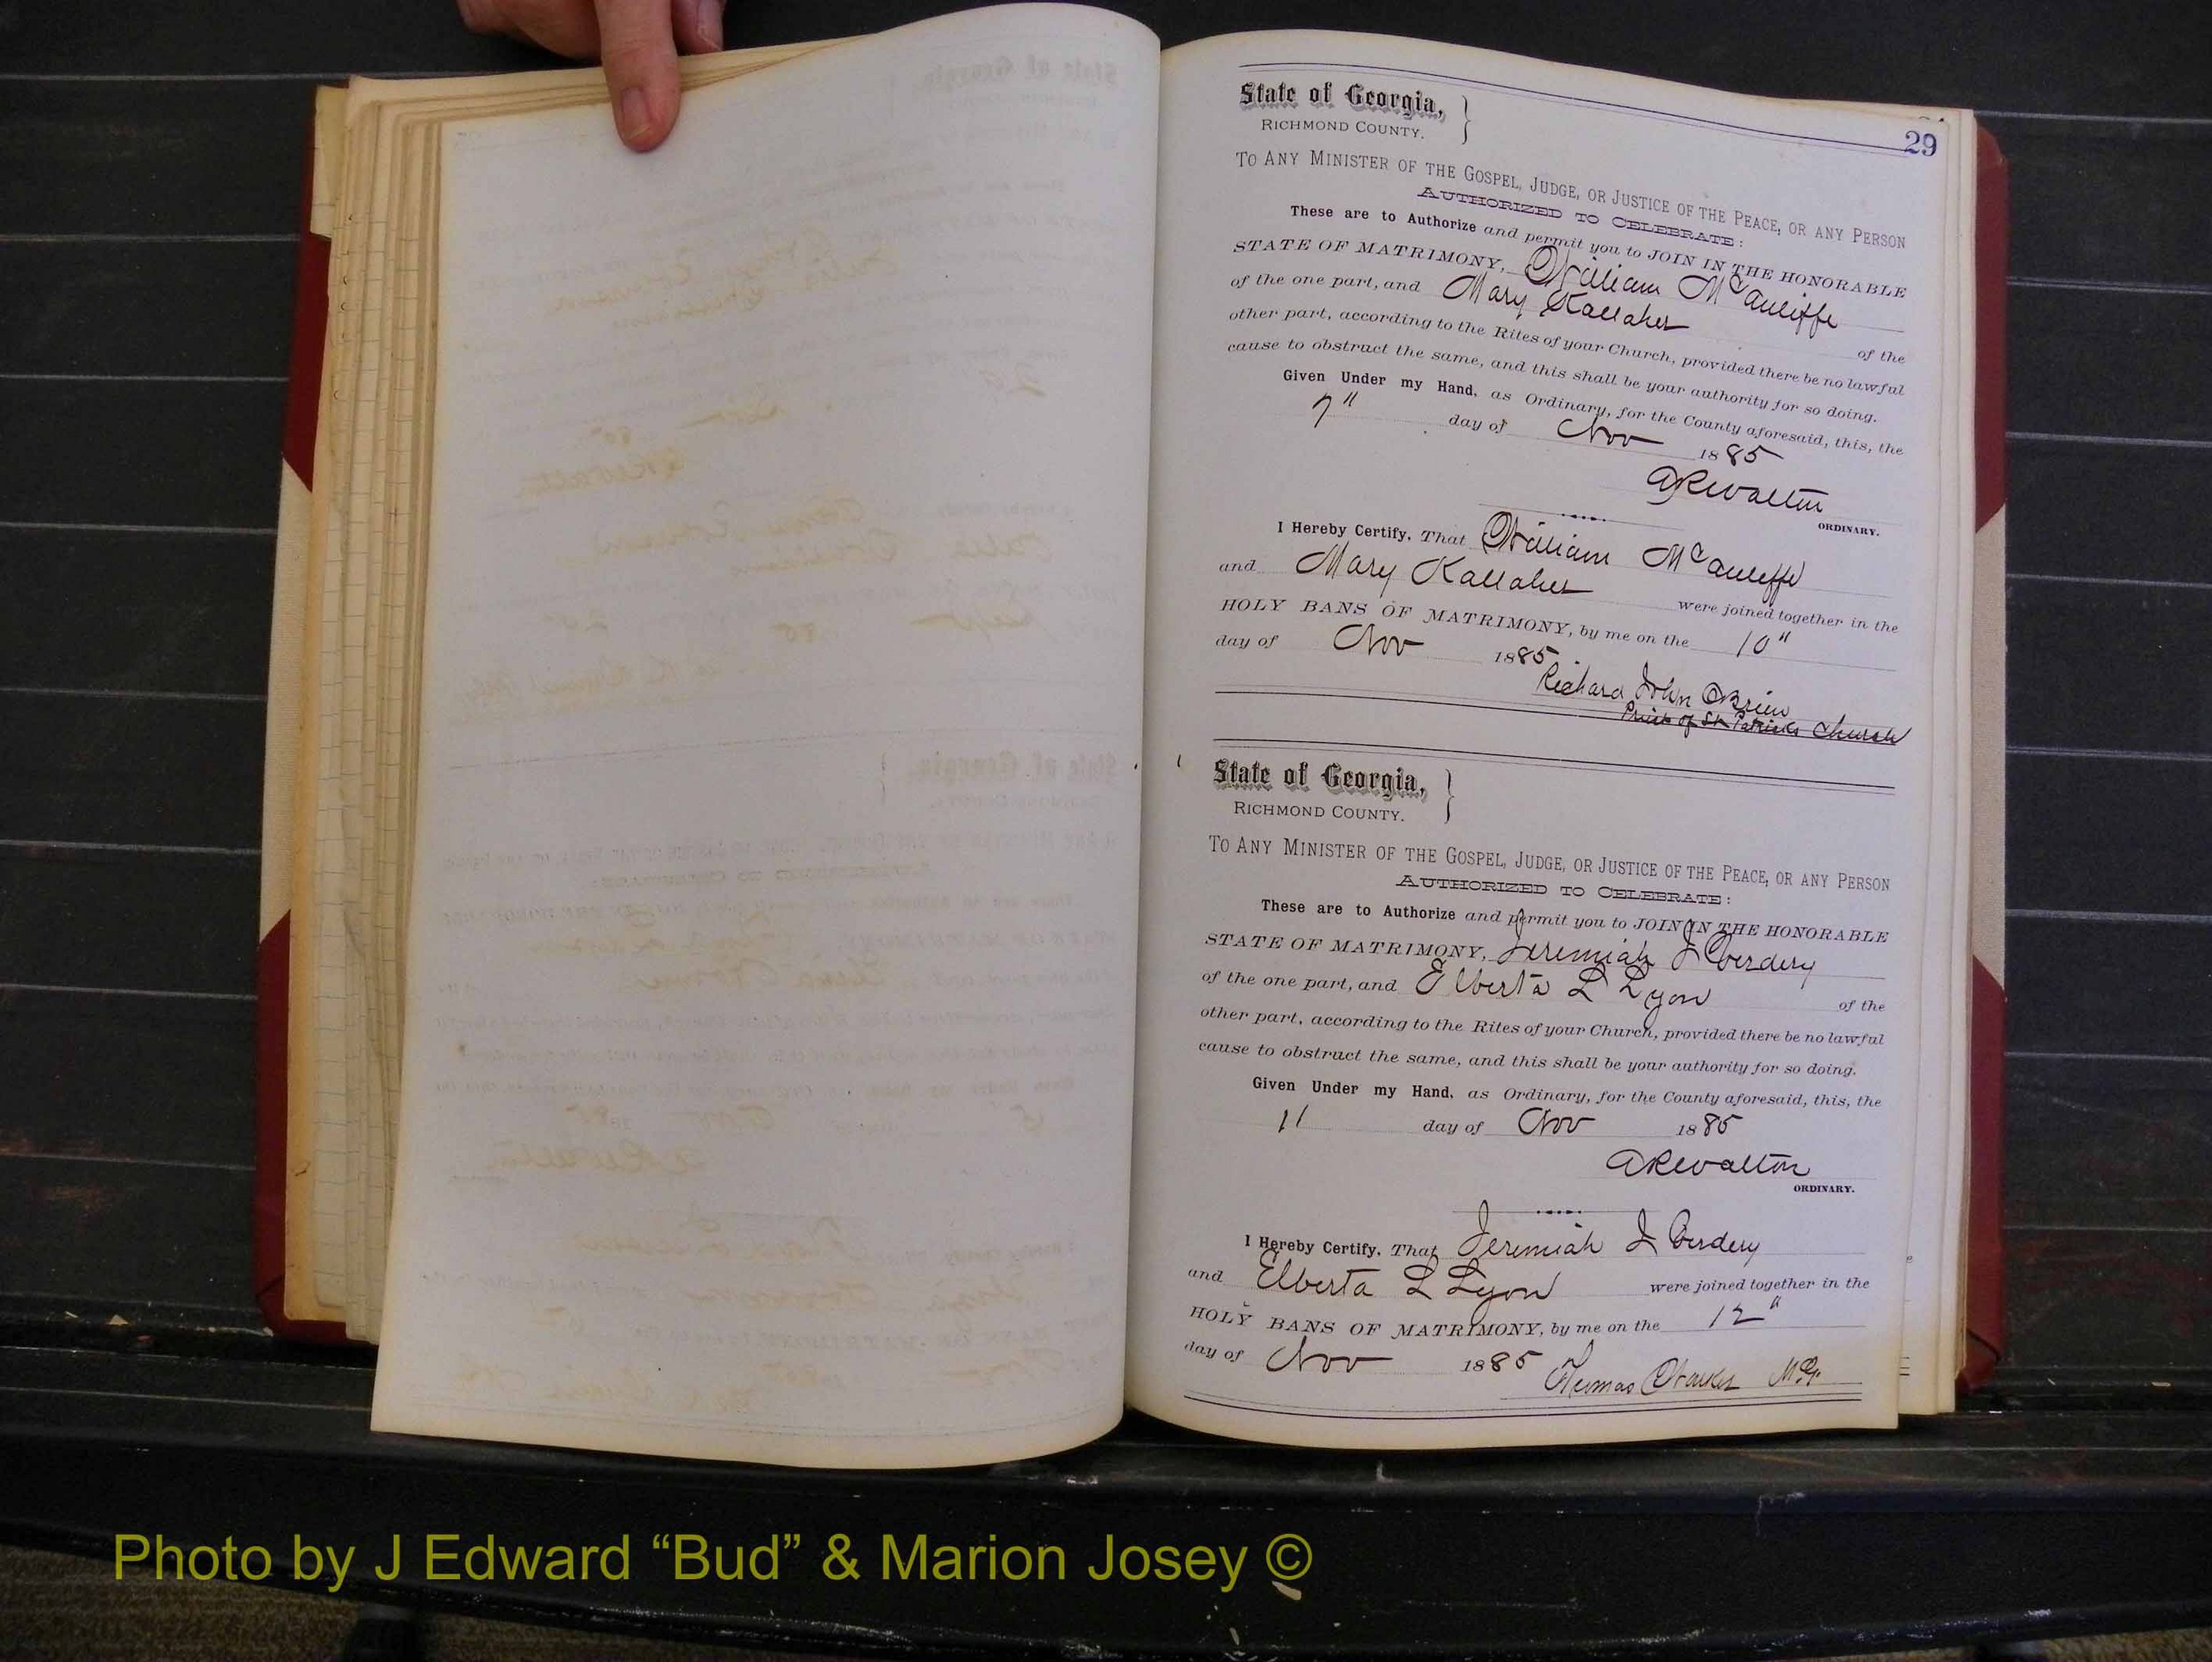 29
State of Georgia, }
RICHMOND COUNTY.
TO ANY MINISTER OF THE GOSPEL, JUDGE, OR JUSTICE OF THE PEACE, OR ANY PERSON
AUTHORIZED TO CELEBRATE:
These are to Authorize and permit you to JOIN IN THE HONORABLE
STATE OF MATRIMONY, William McAuliffe
of the one part, and Mary Kallaher of the
other part, according to the Rites of your Church, provided there be no lawful
cause to obstruct the same, and this shall be your authority for so doing.
Given Under my Hand, as Ordinary, for the County aforesaid, this, the
7" day of Nov 1885
A R Walton
ORDINARY.
I Hereby Certify, That William McAuliffe
and Mary Kallaher were joined together in the
HOLY BANS OF MATRIMONY, by me on the 10"
day of Nov 1885
Richard John OBrien
Priest of St Patricks Church
State of Georgia, }
RICHMOND COUNTY.
TO ANY MINISTER OF THE GOSPEL, JUDGE, OR JUSTICE OF THE PEACE, OR ANY PERSON
AUTHORIZED TO CELEBRATE:
These are to Authorize and permit you to JOIN IN THE HONORABLE
STATE OF MATRIMONY, Jeremiah J Verdery
of the one part, and Elberta L Lyon of the
other part, according to the Rites of your Church, provided there be no lawful
cause to obstruct the same, and this shall be your authority for so doing.
Given Under my Hand, as Ordinary, for the County aforesaid, this, the
11 day of Nov 1885
A R Walton
ORDINARY.
I Hereby Certify, That Jeremiah J Verdery
and Elberta L Lyon were joined together in the
HOLY BANS OF MATRIMONY, by me on the 12"
day of Nov 1885
Thomas Walker M.G.
Photo by J Edward “Bud” & Marion Josey ©